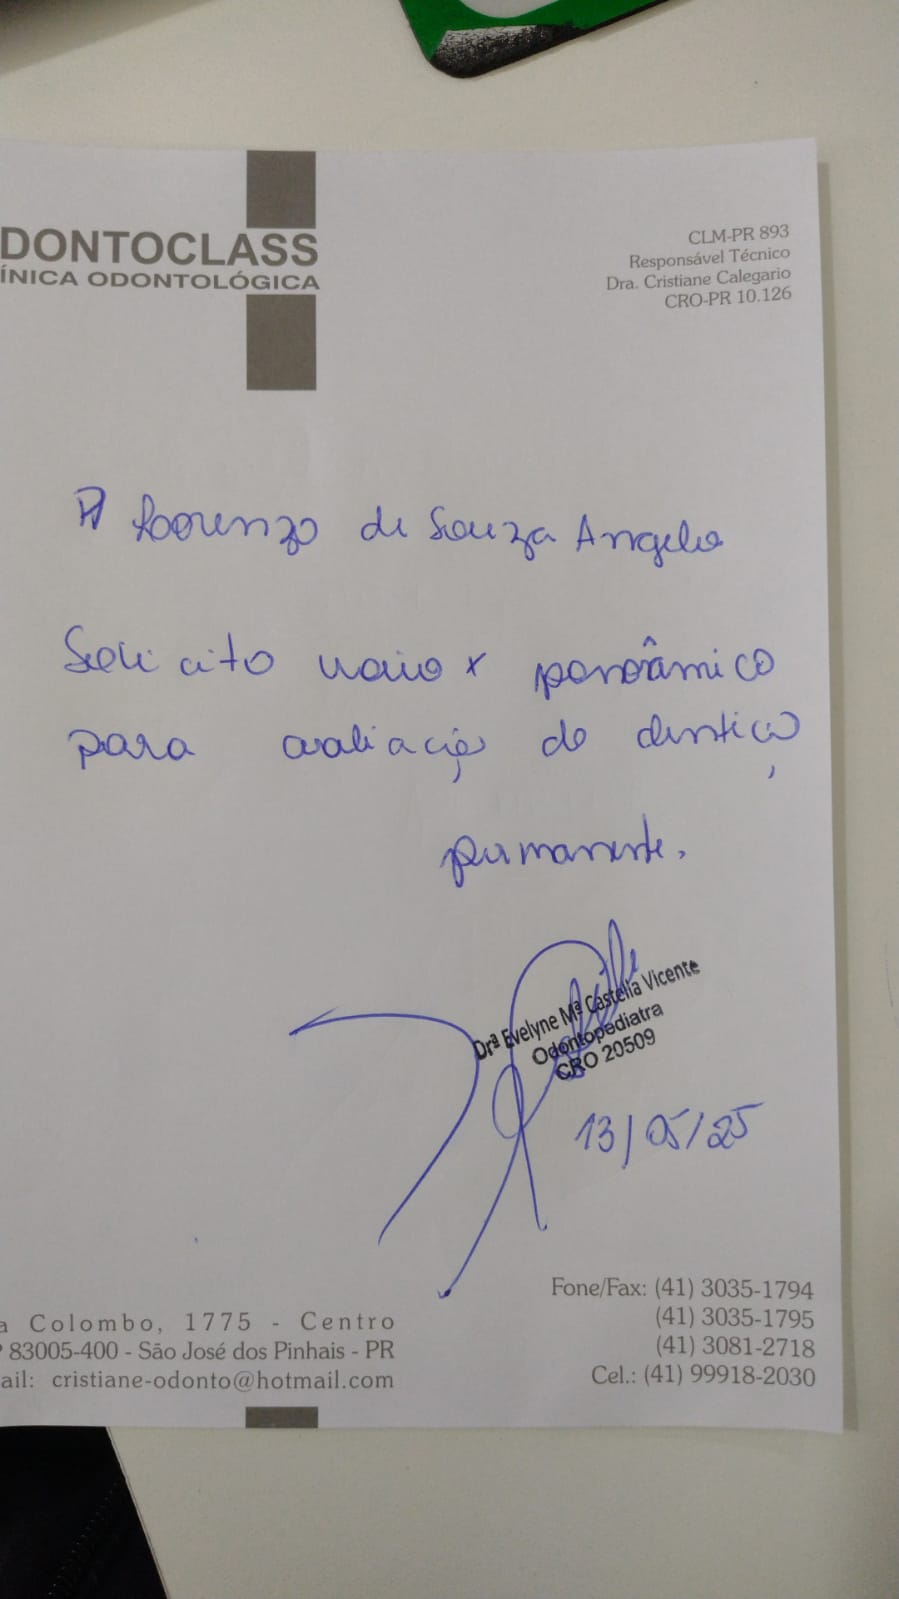 DONTOCLASS
ÍNICA ODONTOLÓGICA
CLM-PR 893
Responsável Técnico
Dra. Cristiane Calegario
CRO-PR 10.126
P/ Lorenzo de Souza Angelo
Solicito raio x panorâmico
para avaliação da dentição
permanente.
Drª Evelyne Mª Castelia Vicente
Odontopediatra
CRO 20509
13/05/25
a Colombo, 1775 - Centro
83005-400 - São José dos Pinhais - PR
ail: cristiane-odonto@hotmail.com
Fone/Fax: (41) 3035-1794
(41) 3035-1795
(41) 3081-2718
Cel.: (41) 99918-2030